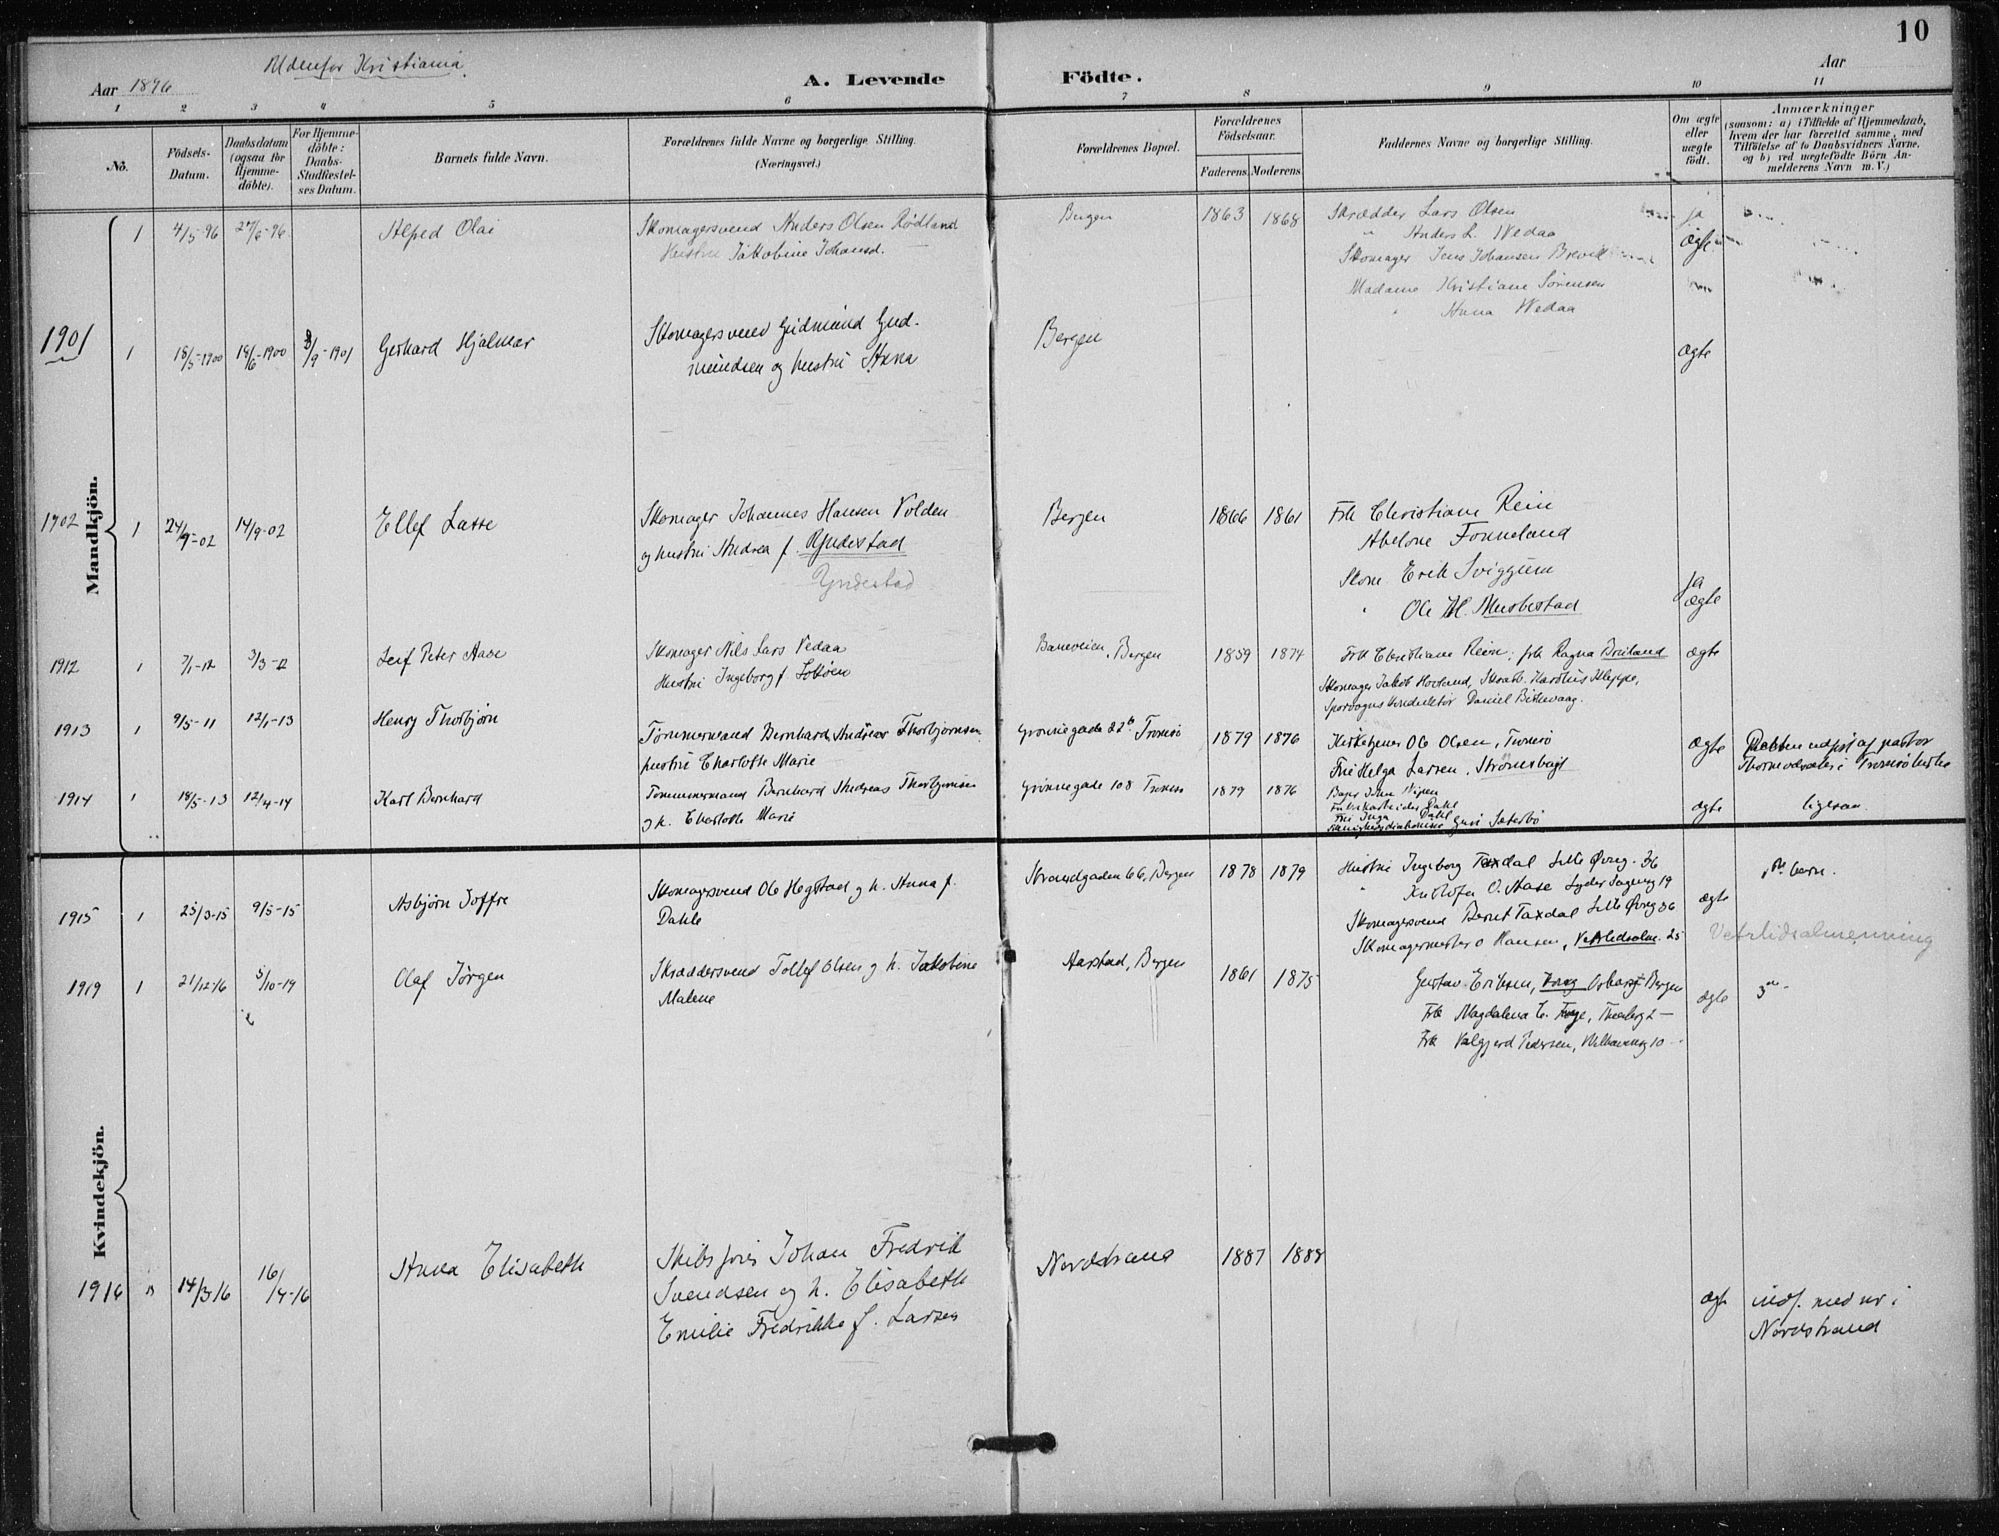 10
Udenfor Kristiania
Aar 1896
A. Levende Födte.
Aar
1 2 3 4 5 6 7 8 9 10 11
No.
Födsels-Datum.
Daabsdatum (ogsaa for Hjemme-döbte).
For Hjemme-döbte: Daabs-Stadfæstel-ses Datum.
Barnets fulde Navn.
Forældrenes fulde Navne og borgerlige Stilling.
(Næringsvei.)
Forældrenes Bopæl.
Forældrenes Födselsaar.
Faderens. Moderens.
Faddernes Navne og borgerlige Stilling.
Om ægte eller uægte födt.
Anmærkninger
(saasom: a) i Tilfælde af Hjemmedaab, hvem der har forrettet samme, med Tilföielse af to Daabsvidners Navne, og b) ved uægtefödte Börn An-melderens Navn m. V.)
Mandkjön.
1 4/5-96 27/6-96 Alfred Olai Skomagersvend Anders Olsen Rødland Bergen 1863 1868 Skrædder Lars Olsen ja
Hustru Jakobine Johansd. " Anders L. Wedaa Ægte
Skomager Jens Johansen Brevik
Madame Kristiane Sørensen
" Anna Wedaa
1901 1 18/5-1900 18/6-1900 /9-1901 Gerhard Hjalmar Skomagersvend Gudmund Gud-
mundsen og hustru Anna Bergen ægte
1902 1 24/-02 14/9-02 Ellef Lasse Skomager Johannes Hansen Volden Bergen 1866 1861 Frk Christiane Rein
og hustru Andrea f. Ryndestad Abelone Fonneland
Yndestad Skom. Erik Sviggum ja
" Ole H. Musbestad ægte
1912 1 7/1-12 3/3-12 Leif Peter Aase Skomager Nils Lars Vedaa Baneveien, Bergen 1859 1874 Frk Christiane Rein, frk Ragna Breiland ægte
Hustru Ingeborg f.
Skomager Jakob Hovland, Kleppe,
Sporvogns konduktør Daniel Birkevaag.
1913 1 9/5-11 12/1-13 Henry Thorbjørn Tømmermand Bernhard Andreas Thorbjørnsen Grønnegade 22b Tromsø 1879 1876 Kirketjener Ole Olsen, Tromsø ægte Daaben udført af pastor
hustru Charlotte Marie Fru Helga Larsen, Strømsbugt i Tromsø kirke
1914 1 18/5-13 12/4-14 Karl Bernhard Tømmermand Bernhard Andreas Thorbjørnsen Grønnegade 108 Tromsø 1879 1876 Bager John
g h. Charlotte Marie Fabrikarbeider Dahl
Fru Inga Dahl
Guri Sæterbø ægte ligesaa
Kvindekjön.
1915 1 25/3-15 9/5-15 Asbjørn Joffre Skomagersvend Ole Hegstad g h. Anna f. Dahle Strandgaden 66, Bergen 1878 1879 Hustru Ingeborg Taxdal Lille Øvreg. 36 1ste barn.
" Kristofa O. Aase Lyder Sagensg 19 ægte
Skomagersvend Bernt Taxdal Lille Øvreg 36
Skomagermester O Hansen, Vetrlidsalm. 25 Vetrlidsalmenning
1919 1 21/12-16 5/10-19 Olaf Jørgen Skræddersvend Tollef Olsen g h. Jakobine Malene Aarstad, Bergen 1861 1875 Gustav Eriksen, Bergen ægte 3
Frk Magdalena E.
Frk Valgjerd Pedersen, 10
1916 14/3-16 16/4-16 Anna Elisabeth Skibsfører Johan Fredrik Nordstrand 1887 1888
Svendsen og h. Elisabeth ægte indf. med nr i
Emilie Fredrikke f. Larsen Nordstrand